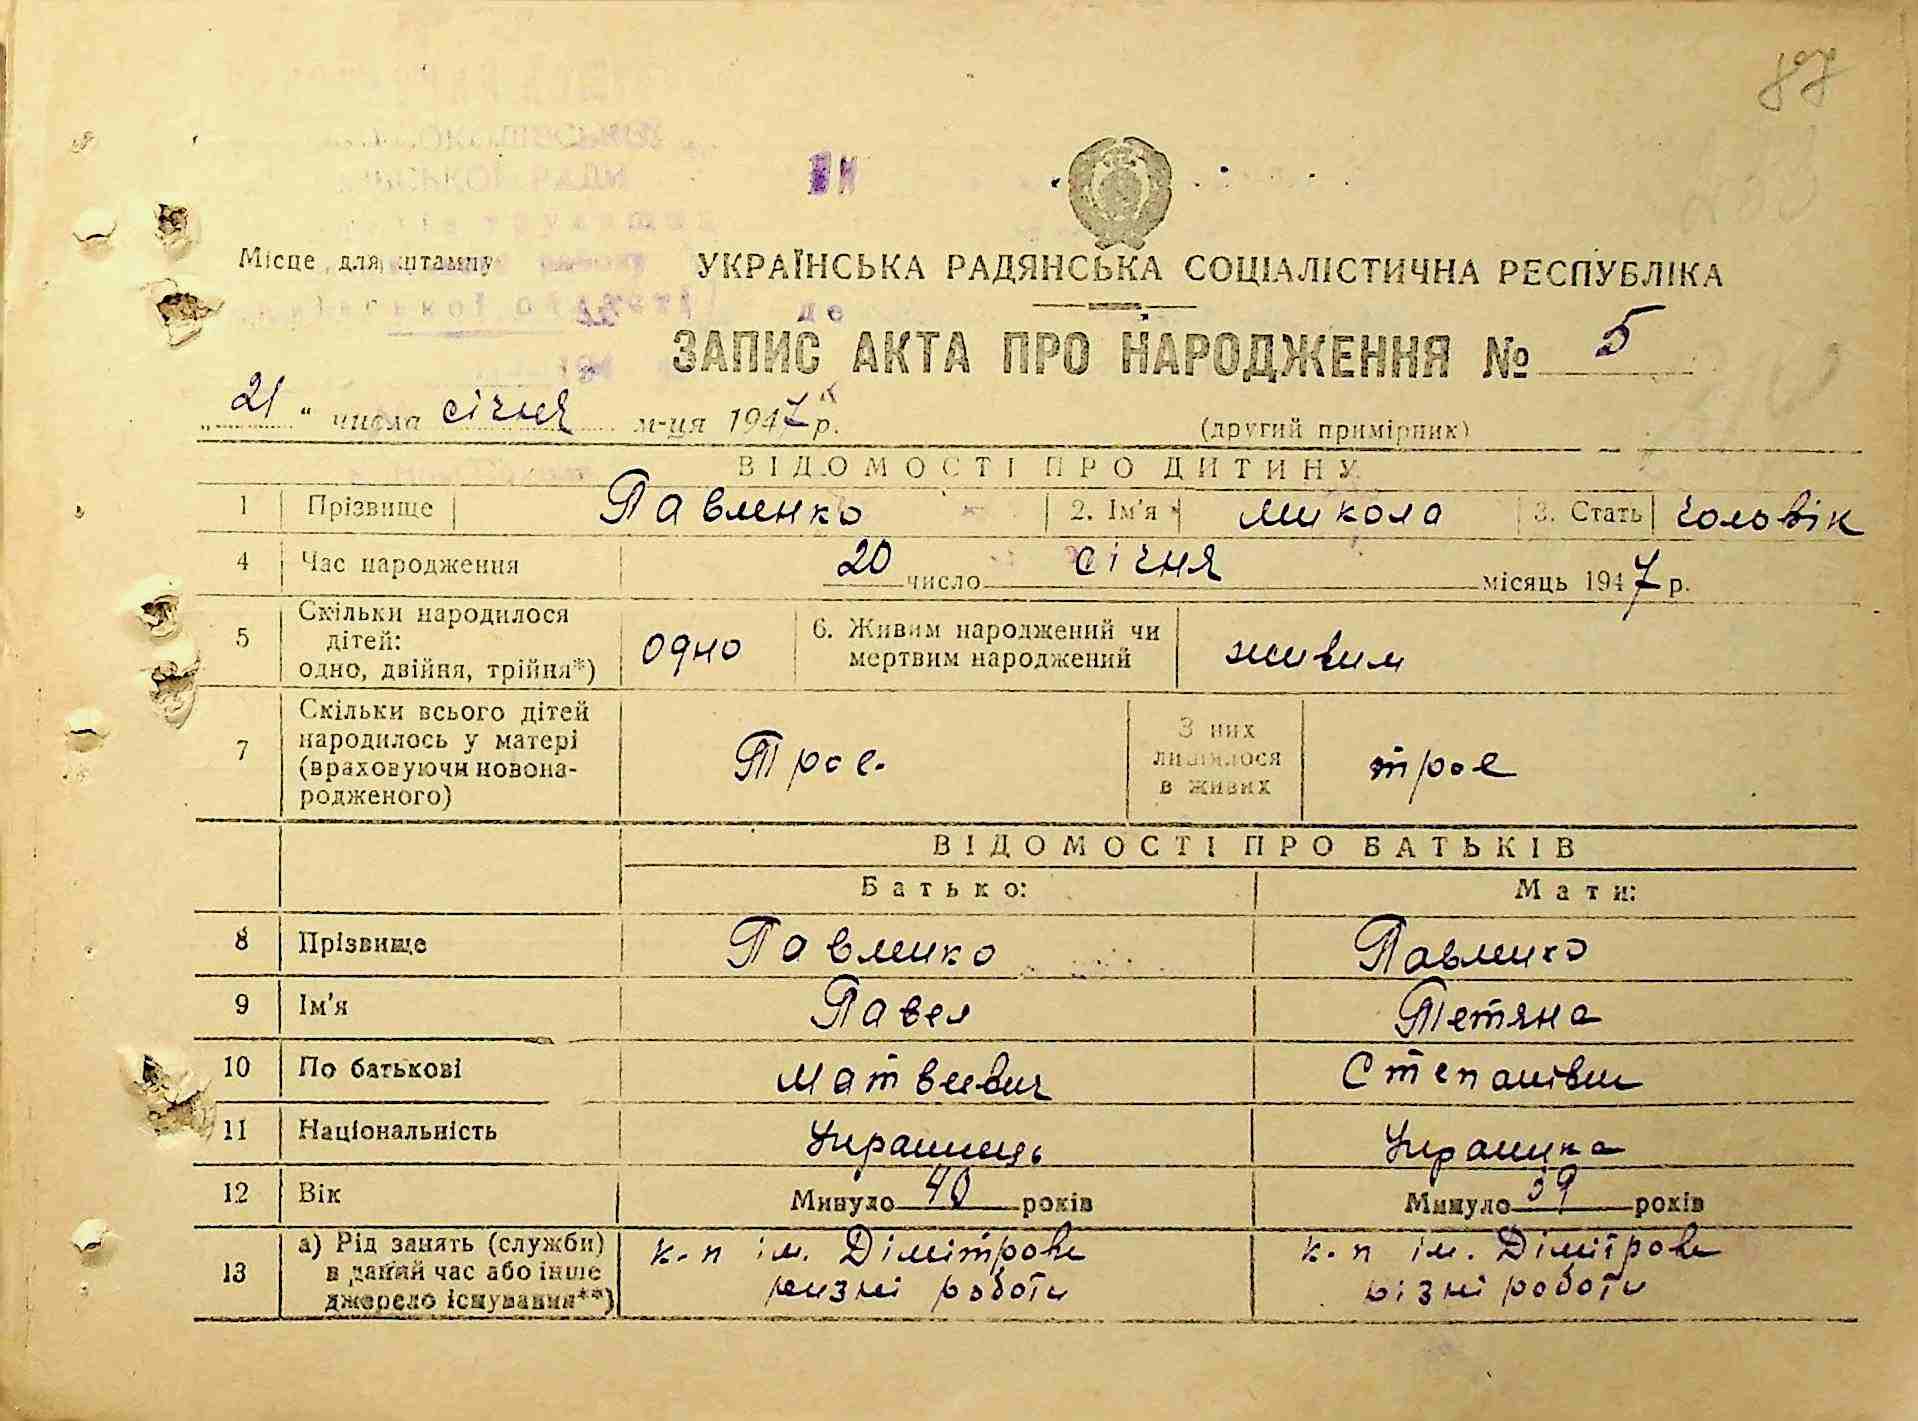 87
Місце для штампу
УКРАЇНСЬКА РАДЯНСЬКА СОЦІАЛІСТИЧНА РЕСПУБЛІКА
ЗАПИС АКТА ПРО НАРОДЖЕННЯ № 5
„21“ числа січня м-ця 1947 р. (другий примірник)
ВІДОМОСТІ ПРО ДИТИНУ
1 Прізвище Павленко 2. Ім'я Микола 3. Стать чоловік
4 Час народження 20 число січня місяць 1947 р.
5 Скільки народилося
дітей:
одно, двійня, трійня*) одно 6. Живим народжений чи
мертвим народжений живим
7 Скільки всього дітей
народилось у матері
(враховуючи новона-
родженого) Троє З них
лишилося
в живих троє
ВІДОМОСТІ ПРО БАТЬКІВ
Батько: Мати:
8 Прізвище Павленко Павленко
9 Ім'я Павел Тетяна
10 По батькові Матвеевич Степанівна
11 Національність Українець Українка
12 Вік Минуло 40 років Минуло 39 років
13 а) Рід занять (служби)
в даний час або інше
джерело існування**) к-п ім. Дімітрова
різні роботи к-п ім. Дімітрова
різні роботи